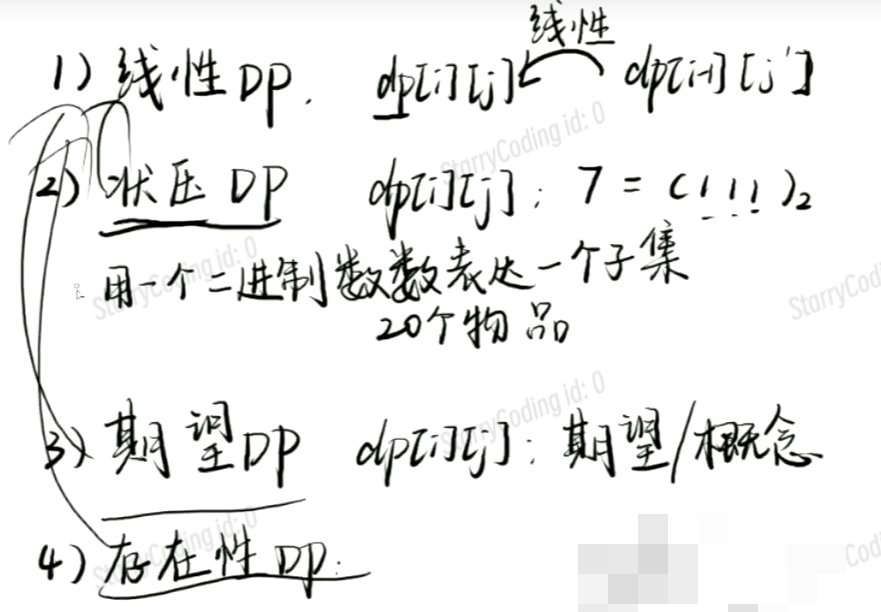 线性
1) 线性DP. dp[i][j] dp[i-1][j']
StarryCoding id: 0
2) 状压DP dp[i][j]: 7 = (111)₂
用一个二进制数数表达一个子集
StarryCoding id: 0
StarryCod
20个物品
StarryCoding id: 0
3) 期望DP dp[i][j]: 期望/概念
StarryCoding id: 0
4) 存在性DP:
Cod